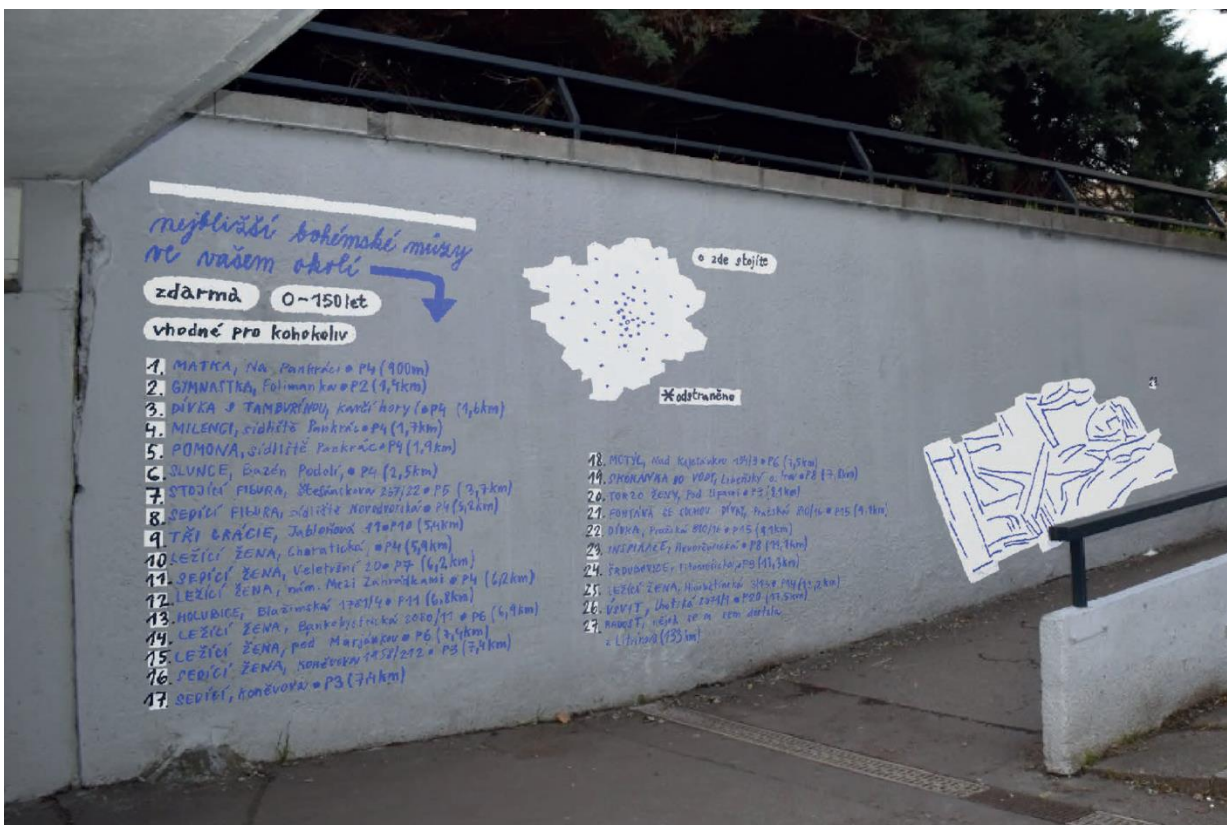 nejbližší bohémské múzy
ve vašem okolí
zdarma
0-150let
vhodné pro kohokoliv
1. MATKA, Na Pankráci • P4 (900m)
2. GYMNASTKA, Folimanka • P2 (1,4km)
3. DÍVKA S TAMBURÍNOU, kavčí hory • P4 (1,6km)
4. MILENCI, sídliště Pankrác • P4 (1,7km)
5. POMONA, sídliště Pankrác • P4 (1,9km)
6. SLUNCE, Bazén Podolí, • P4 (2,5km)
7. STOJÍCÍ FIGURA, Štefánikova 257/22 • P5 (3,7km)
8. SEDÍCÍ FIGURA, sídliště Novodvorská • P4 (5,2km)
9. TŘI GRÁCIE, Jabloňová 11 • P10 (5,4km)
10. LEŽÍCÍ ŽENA, Charatická, • P4 (5,9km)
11. SEDÍCÍ ŽENA, Veletržní 20 • P7 (6,2km)
12. LEŽÍCÍ ŽENA, nám. Mezi Zahrádkami • P4 (6,2km)
13. HOLUBICE, Blažimská 1781/4 • P11 (6,8km)
14. LEŽÍCÍ ŽENA, Bankobystrická 2080/11 • P6 (6,9km)
15. LEŽÍCÍ ŽENA, pod Marjánkou • P6 (7,4km)
16. SEDÍCÍ ŽENA, Koněvova 1958/212 • P3 (7,4km)
17. SEDÍCÍ, Koněvova • P3 (7,4km)
zde stojíte
*odstraněno
18. MOTÝL, Nad Kajetánkou • P6
19. SKOKANKA DO VODY, Libeňský • P8
20. TORZO ŽENY, Pod lipami • P3
21. FONTÁNA SE SOCHOU DÍVKY, Pražská 810/16 • P15
22. DÍVKA, Pražská 810/16 • P15
23. INSPIRACE, • P8
24. • P9 (11,3km)
25. LEŽÍCÍ ŽENA,
26. ÚSVIT,
27. RADOST, nějak se m sem dostala
z Litvínova